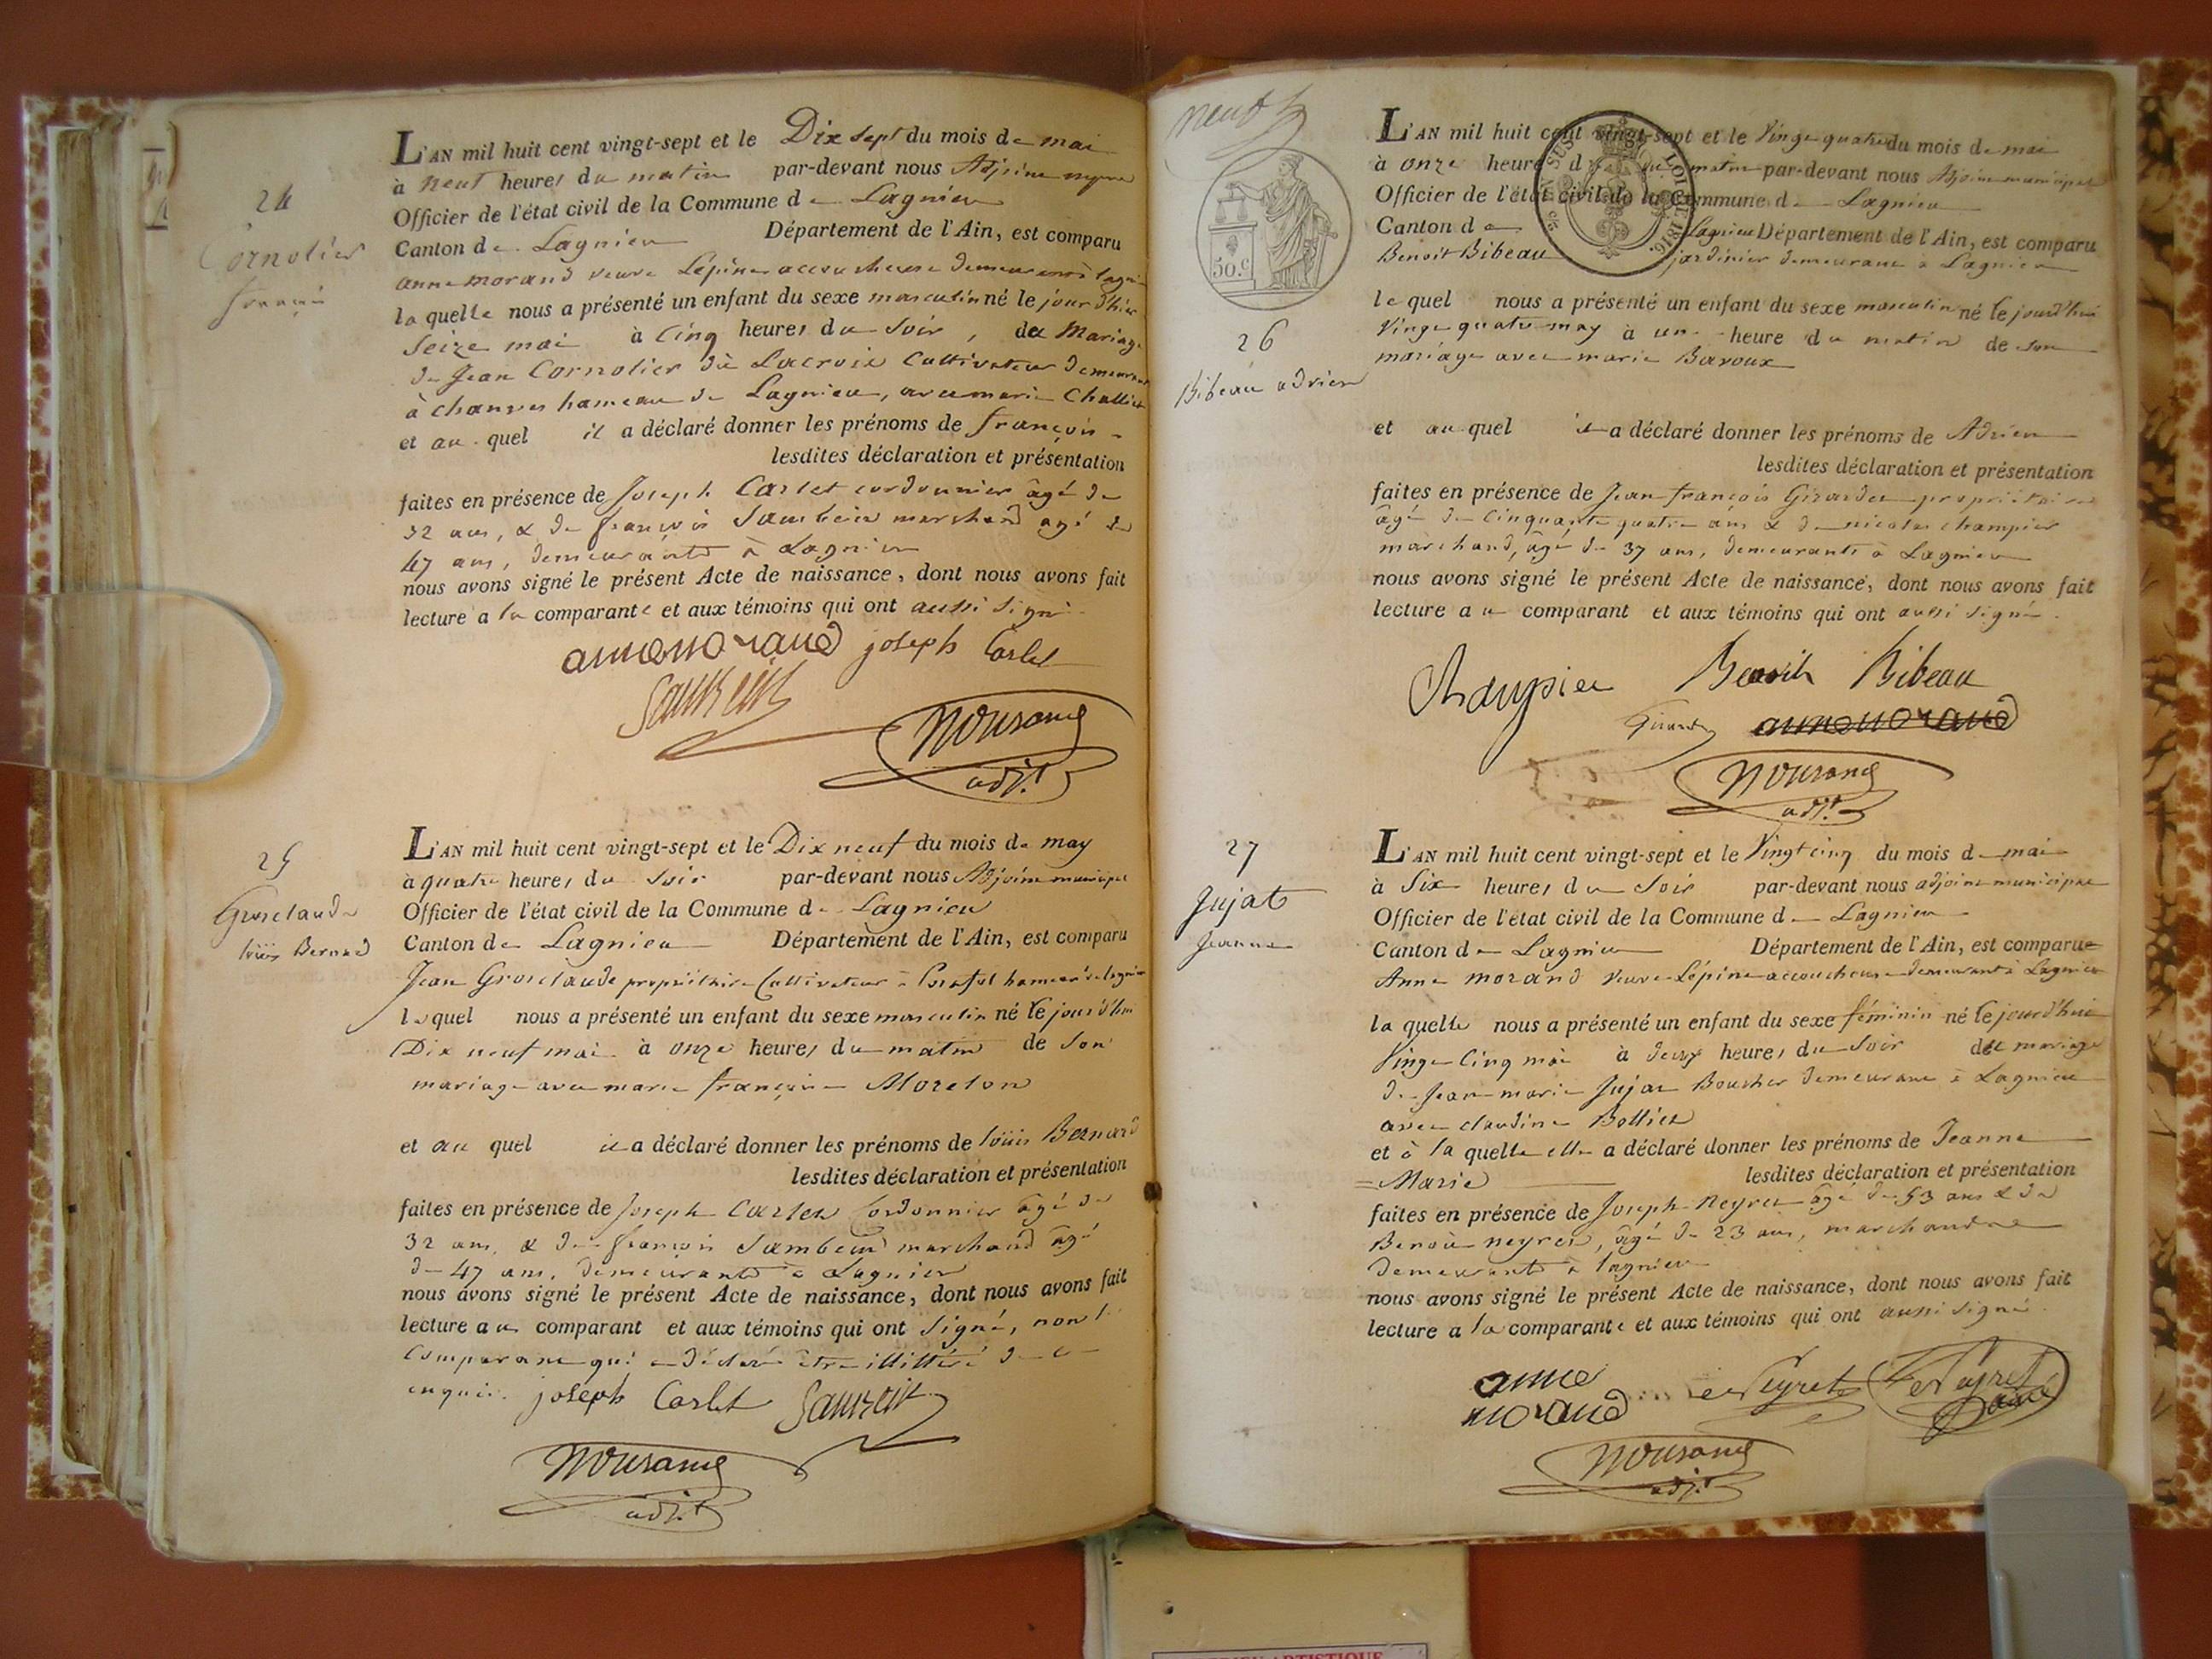 24
Cornolier
françois
L'AN mil huit cent vingt-sept et le Dix sept du mois de mai
à neuf heures du matin par-devant nous Adjoint
Officier de l'état civil de la Commune de Lagnieu
Canton de Lagnieu Département de l'Ain, est comparu
anne morand veuve Lépine accoucheuse demeurant à
la quelle nous a présenté un enfant du sexe masculin né le jour d'hier
Seize mai à Cinq heures du Soir, du Mariage
de Jean Cornolier dit Lacroix Cultivateur demeurant
à chanves hameau de Lagnieu, avec marie
et au quel il a déclaré donner les prénoms de françois
lesdites déclaration et présentation
faites en présence de Joseph Carlet cordonnier âgé de
32 ans, & de françois Sambein marchand agé de
47 ans, demeurants à Lagnieu
nous avons signé le présent Acte de naissance, dont nous avons fait
lecture a la comparante et aux témoins qui ont aussi signé
anne morand joseph Carlet
Sambein
adjt
25
Grosclaude
loüis Bernard
L'AN mil huit cent vingt-sept et le Dix neuf du mois de may
à quatre heures du Soir par-devant nous Adjoint municipal
Officier de l'état civil de la Commune de Lagnieu
Canton de Lagnieu Département de l'Ain, est comparu
Jean Grosclaude propriétaire Cultivateur à hameau de Lagnieu
lequel nous a présenté un enfant du sexe masculin né le jourd'hui
Dix neuf mai à onze heures du matin de Son
mariage avec marie françoise Moreton
et au quel il a déclaré donner les prénoms de loüis Bernard
lesdites déclaration et présentation
faites en présence de Joseph Carlet Cordonnier âgé de
32 ans, & de françois Sambein marchand âgé
de 47 ans, demeurants à Lagnieu
nous avons signé le présent Acte de naissance, dont nous avons fait
lecture au comparant et aux témoins qui ont signé, non le
Comparant qui a déclaré être illitéré de ce
enquis. joseph Carlet Sambein
adjt
neuf
50.c
26
Bibeau adrien
L'AN mil huit cent vingt-sept et le Vingt quatre du mois de mai
à onze heures du matin par-devant nous Adjoint municipal
Officier de l'état civil de la Commune de Lagnieu
Canton de Lagnieu Département de l'Ain, est comparu
Benoit Bibeau jardinier demeurant à Lagnieu
LOI DE 1816.
le quel nous a présenté un enfant du sexe masculin né le jourd'hui
Vingt quatre may à un heure du matin de son
mariage avec marie Baroux
et au quel il a déclaré donner les prénoms de Adrien
lesdites déclaration et présentation
faites en présence de Jean françois Girardet propriétaire
âgé de Cinquante quatre ans & de nicolas champier
marchand, âgé de 37 ans, demeurants à Lagnieu
nous avons signé le présent Acte de naissance, dont nous avons fait
lecture au comparant et aux témoins qui ont aussi signé.
Champier Benoit Bibeau
anne morand
adjt
27
Jujat
Jeanne
L'AN mil huit cent vingt-sept et le Vingt cinq du mois de mai
à Six heures du Soir par-devant nous adjoint municipal
Officier de l'état civil de la Commune de Lagnieu
Canton de Lagnieu Département de l'Ain, est comparue
Anne morand veuve Lépine accoucheuse demeurant à Lagnieu
la quelle nous a présenté un enfant du sexe féminin né le jourd'hui
Vingt Cinq mai à deux heures du Soir du mariage
de Jean marie Jujat Boucher demeurant à Lagnieu
avec claudine Bolliet
et à la quelle elle a déclaré donner les prénoms de Jeanne
= Marie lesdites déclaration et présentation
faites en présence de Joseph Neyret âgé de 53 ans & de
Benoit neyret, âgé de 23 ans, marchands
demeurants à lagnieu
nous avons signé le présent Acte de naissance, dont nous avons fait
lecture a la comparante et aux témoins qui ont aussi signé
anne
morand Neyret Neyret
adjt